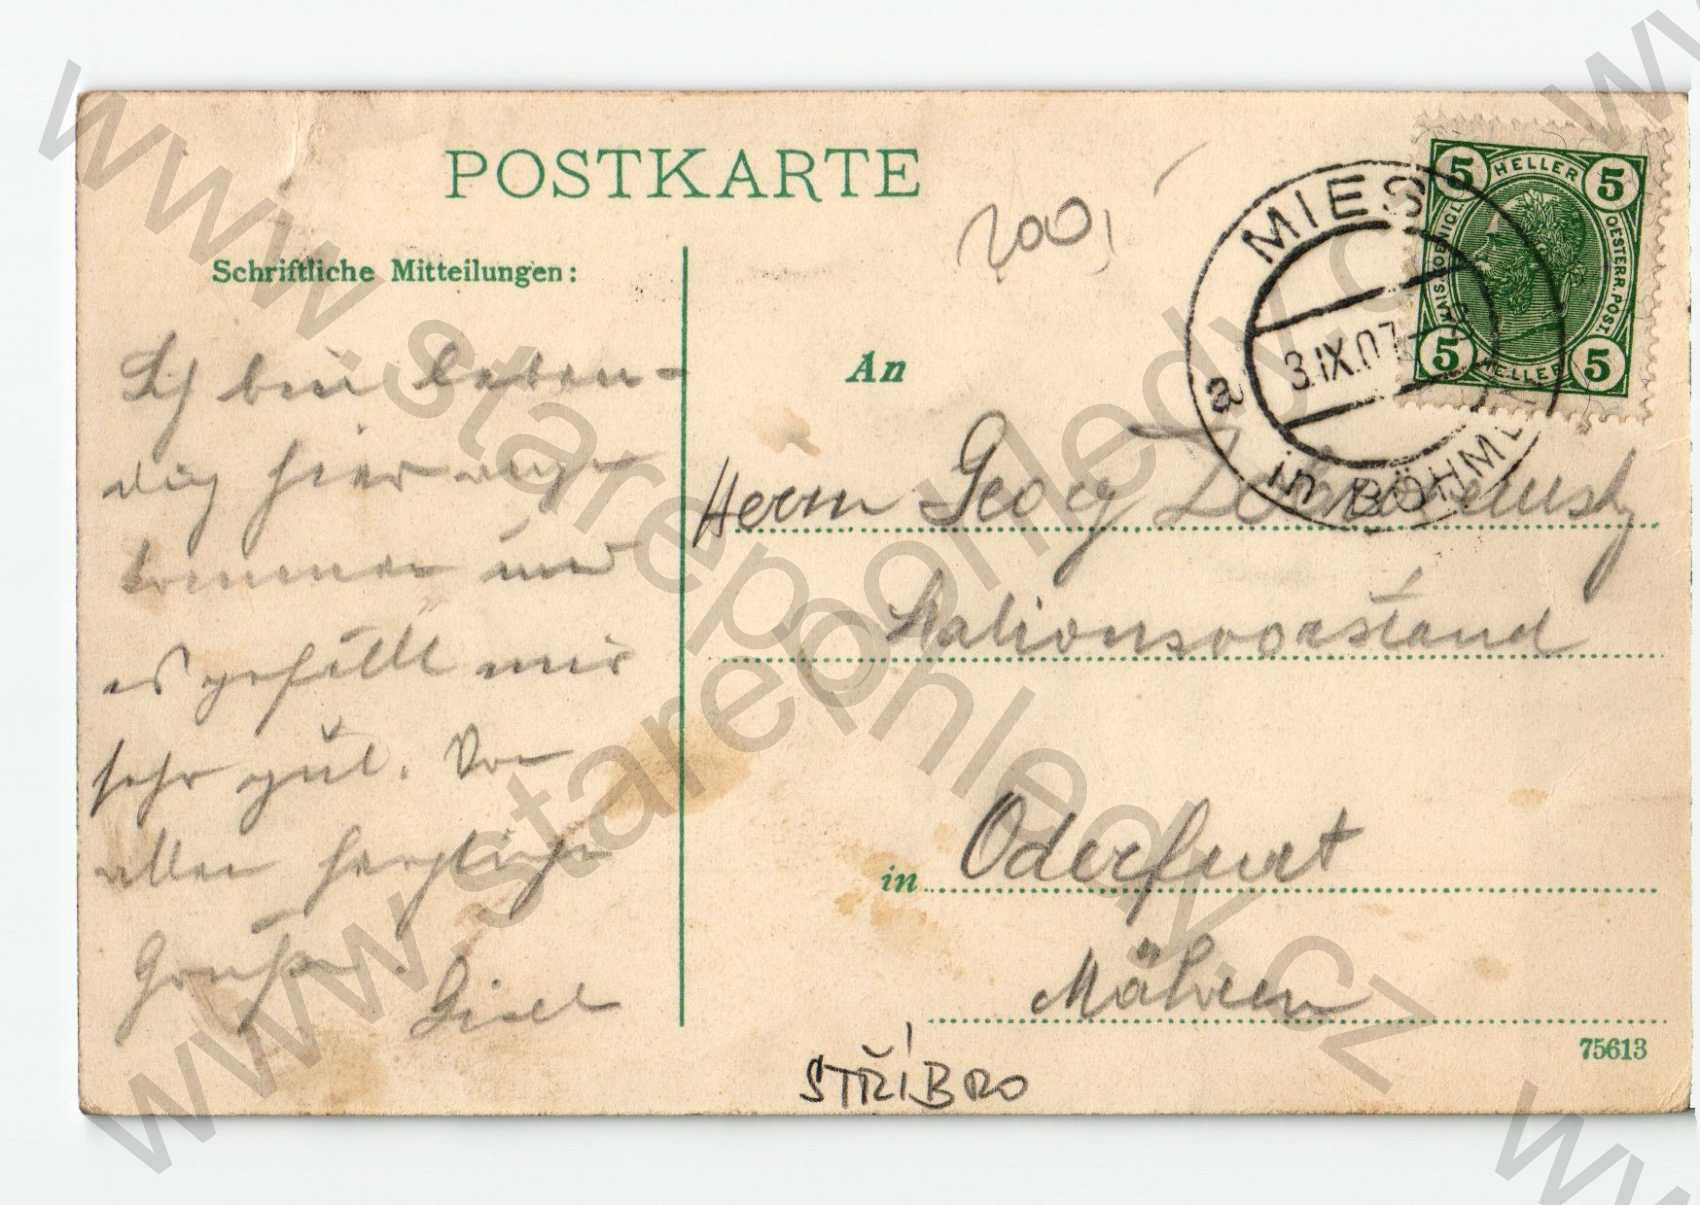 POSTKARTE
200,
Schriftliche Mitteilungen:
Ich bin leben-
dig hier ange-
kommen und
es gefällt mir
sehr gut. Von
allen herzliche
Grüße.
Gisel
5 HELLER 5
KAIS. KOENIGL. OESTERR. POST.
5 HELLER 5
MIES
3.IX.07
a
in BÖHMEN
An
Herrn Georg
Stationsvorstand
in Oderfurt
Mähren
75613
STŘÍBRO
www.starepohledy.cz
www.starepohledy.cz